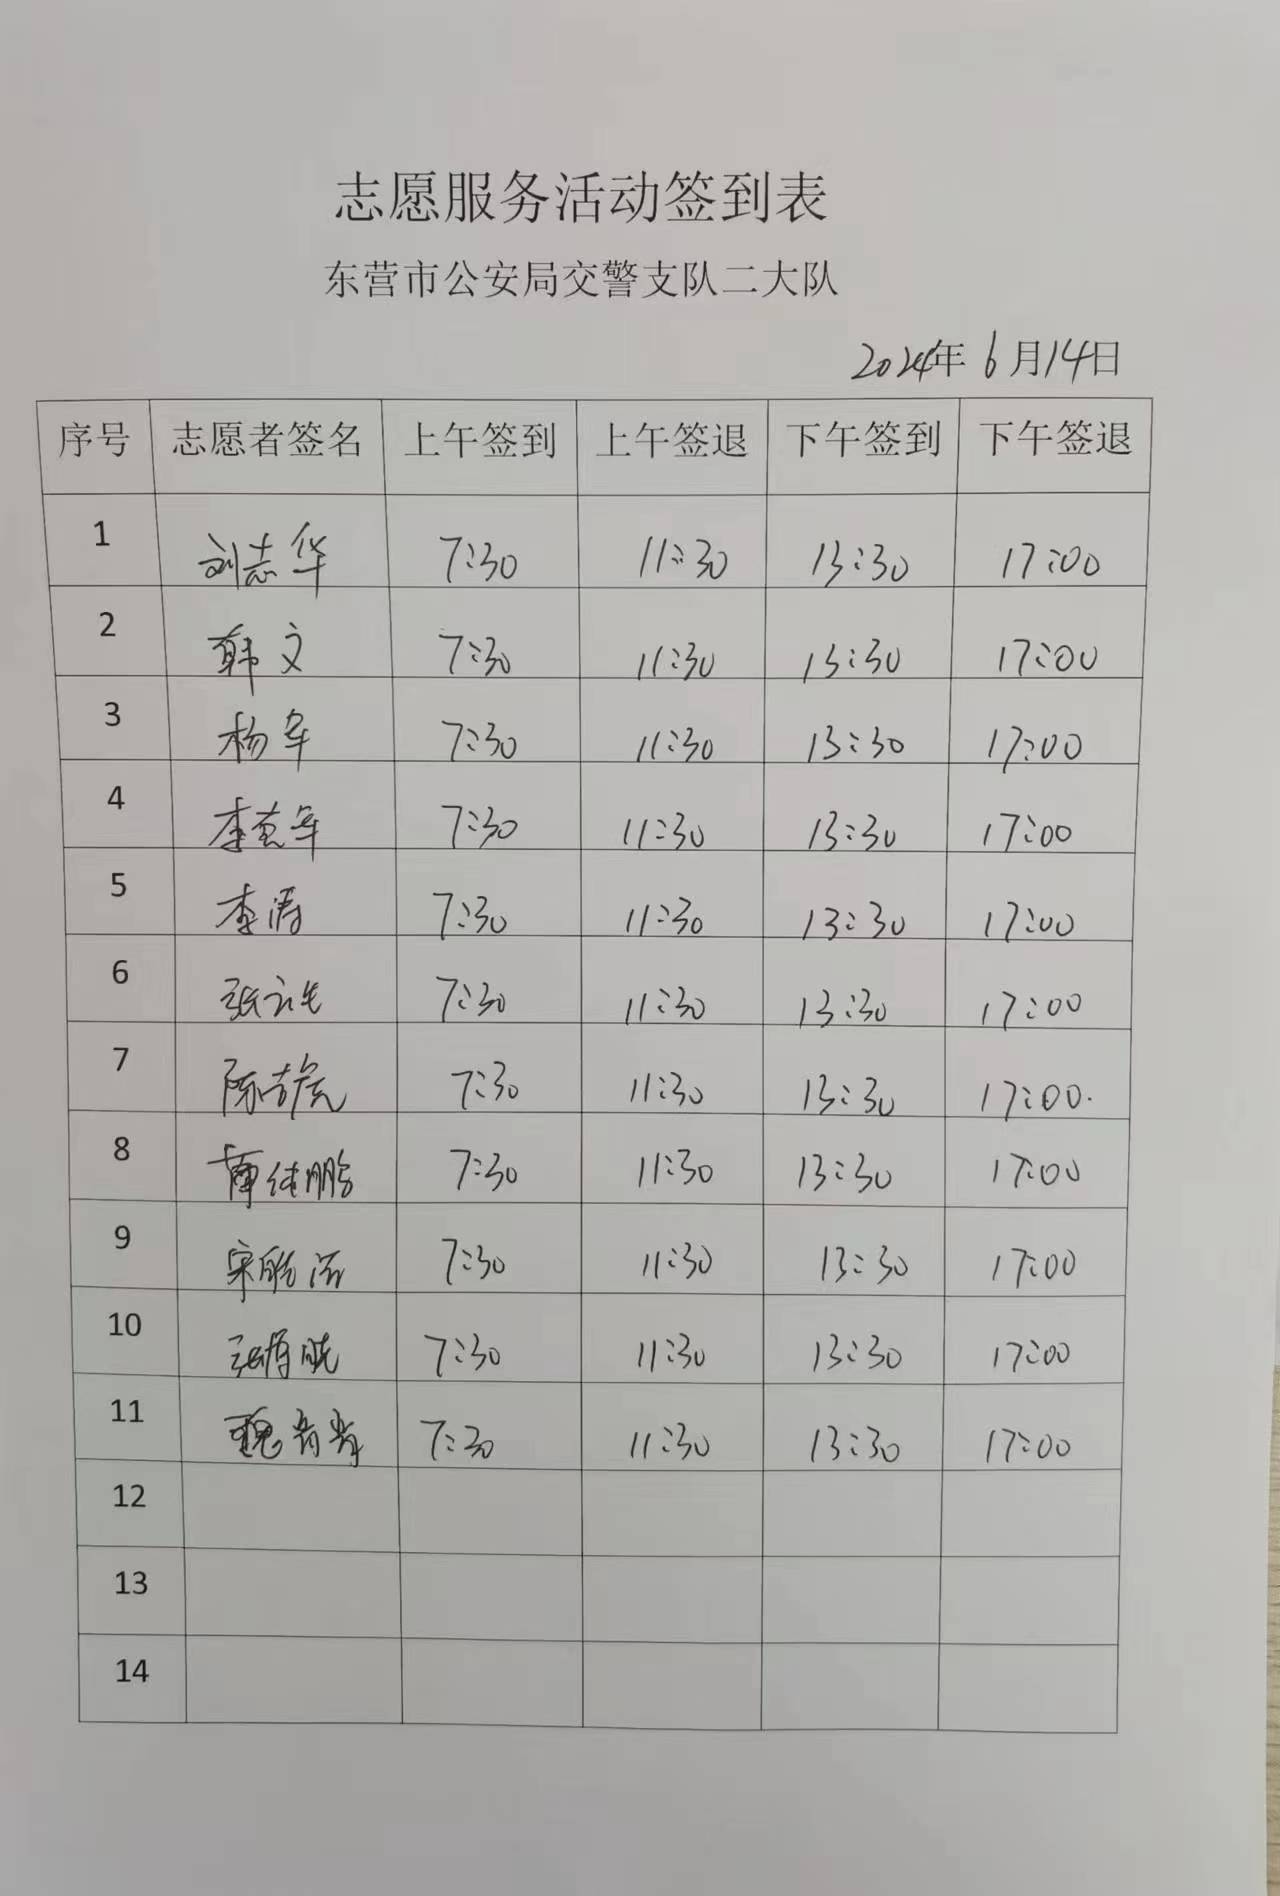 志愿服务活动签到表
东营市公安局交警支队二大队
2024年 6月14日
序号 志愿者签名 上午签到 上午签退 下午签到 下午签退
1 刘志华 7:30 11:30 13:30 17:00
2 韩文 7:30 11:30 13:30 17:00
3 杨军 7:30 11:30 13:30 17:00
4 李 军 7:30 11:30 13:30 17:00
5 李涛 7:30 11:30 13:30 17:00
6 张 7:30 11:30 13:30 17:00
7 陈 7:30 11:30 13:30 17:00
8 鹏 7:30 11:30 13:30 17:00
9 宋 7:30 11:30 13:30 17:00
10 张 晓 7:30 11:30 13:30 17:00
11 魏 7:30 11:30 13:30 17:00
12
13
14